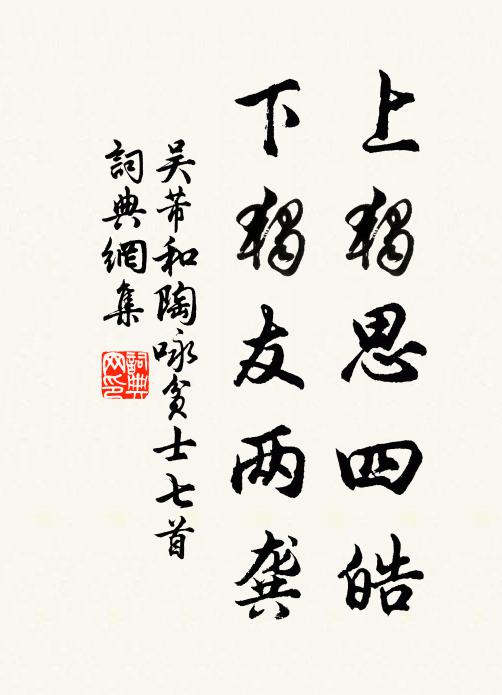 上獨思四皓
下獨友两龔
吴芾和陶咏贫士七首
詞典網集
詞典網印